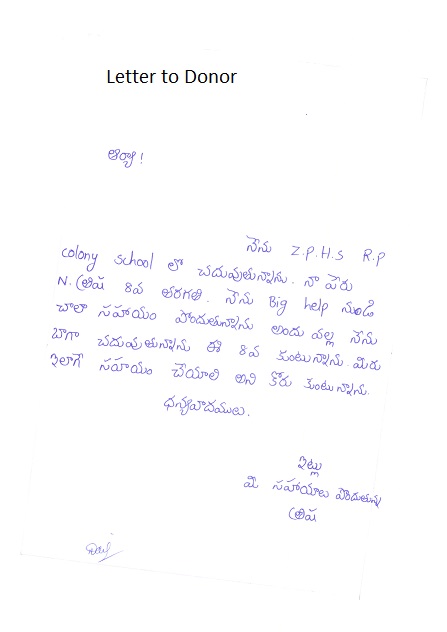 Letter to Donor
ఆర్యా!
నేను Z.P.H.S R.P
colony school లో చదువుతున్నాను. నా పేరు
N. త్రిష 8వ తరగతి. నేను Big help నుండి
చాలా సహాయం పొందుతున్నాను అందు వల్ల నేను
బాగా చదువుతున్నాను ఈ 8వ కుంటున్నాను. మీరు
ఇలాగే సహాయం చేయాలి అని కోరు కుంటున్నాను.
ధన్యవాదములు.
ఇట్లు
మీ సహాయాలు పొందుతున్న
త్రిష